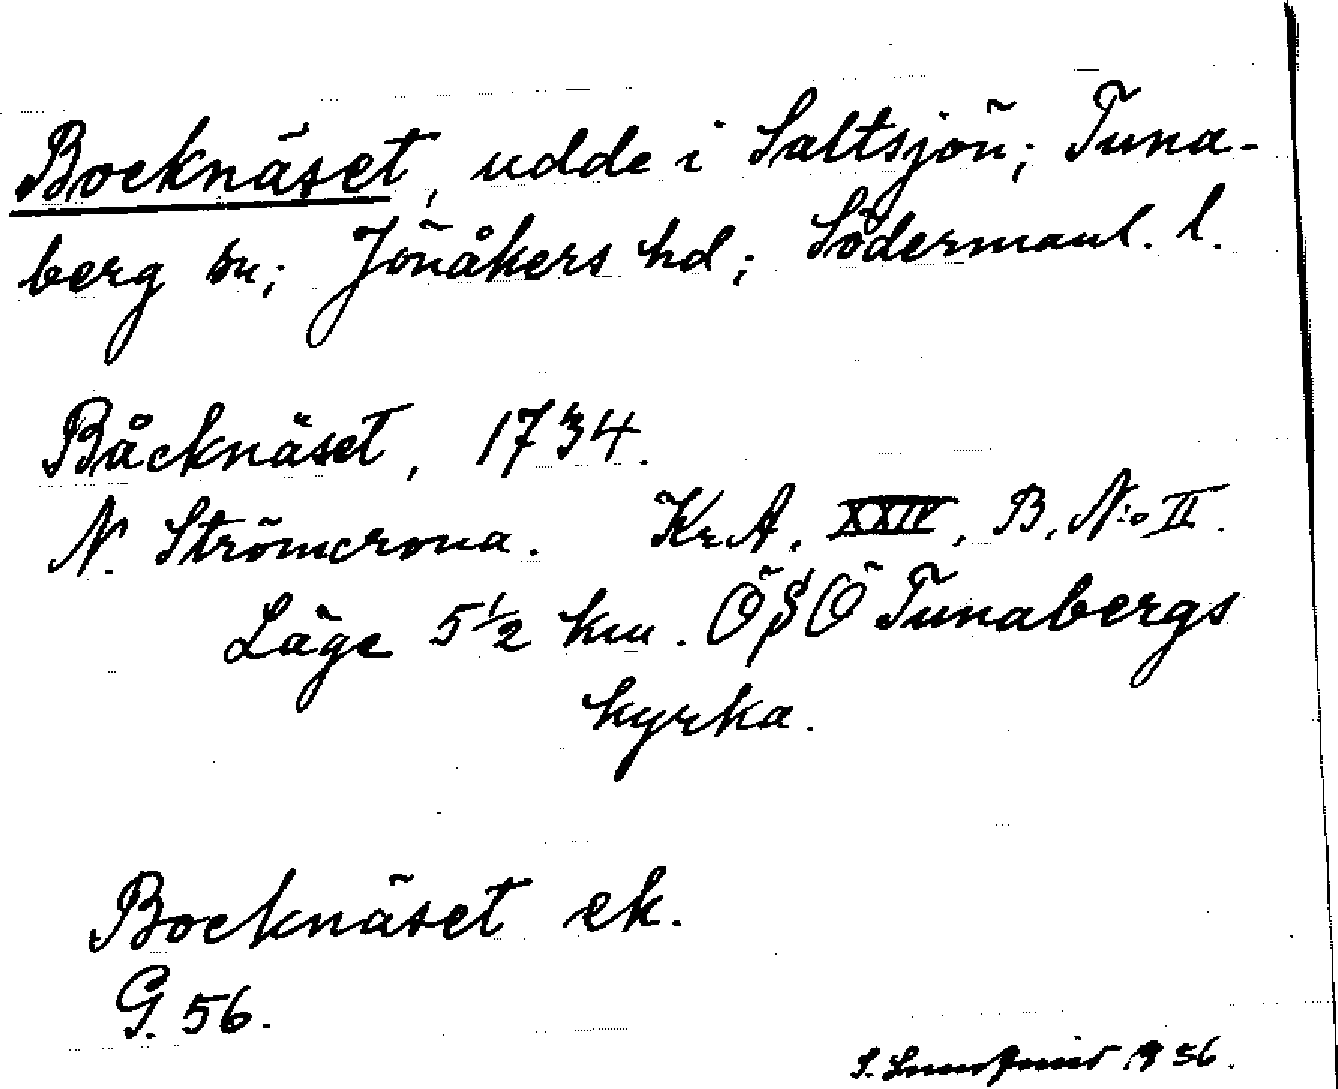 Bocknäset, udde i Saltsjön; Tuna-
berg sn; Jönåkers hd; Södermanl. l.
Båcknäset, 1734.
N. Strömcrona. Kr.A. XXIV, B. N:o II.
Läge 5 1/2 km. ÖSÖ Tunabergs
kyrka.
Bocknäset ek.
G. 56.
S. 1956.